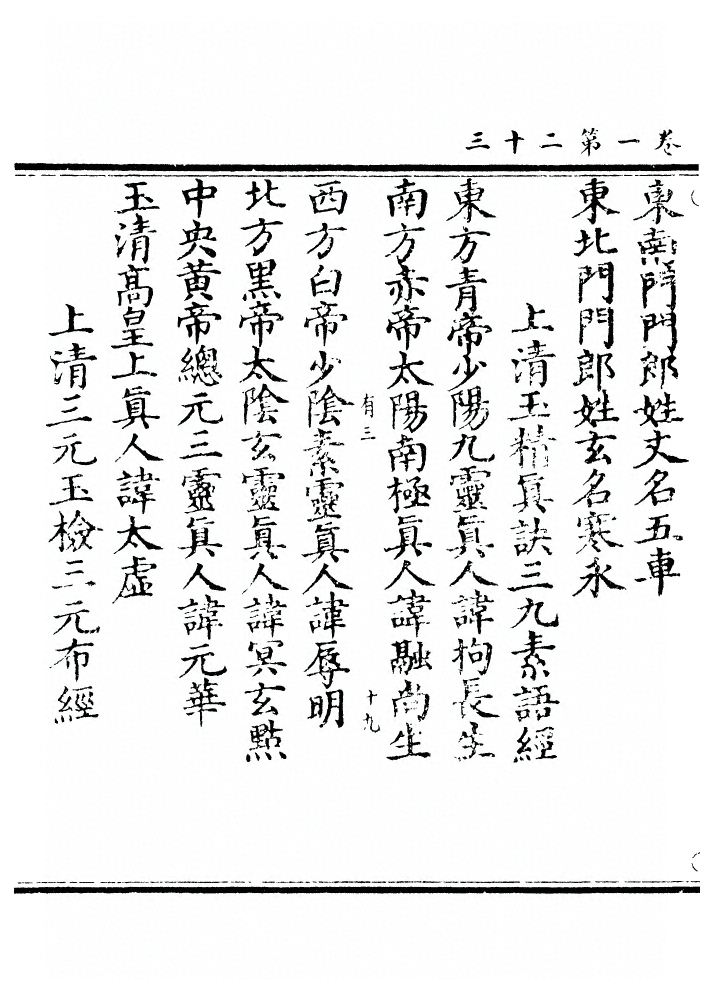 卷一第二十三
東南門門郎姓文名五車
東北門門郎姓玄名寒永
上清玉精眞訣三九素語經
東方青帝少陽九靈眞人諱拘長生
南方赤帝太陽南極眞人諱融尚生
有三 十九
西方白帝少陰素靈眞人諱辱明
北方黑帝太陰玄靈眞人諱冥玄點
中央黄帝總元三靈眞人諱元華
玉清高皇上眞人諱太虛
上清三元玉檢三元布經